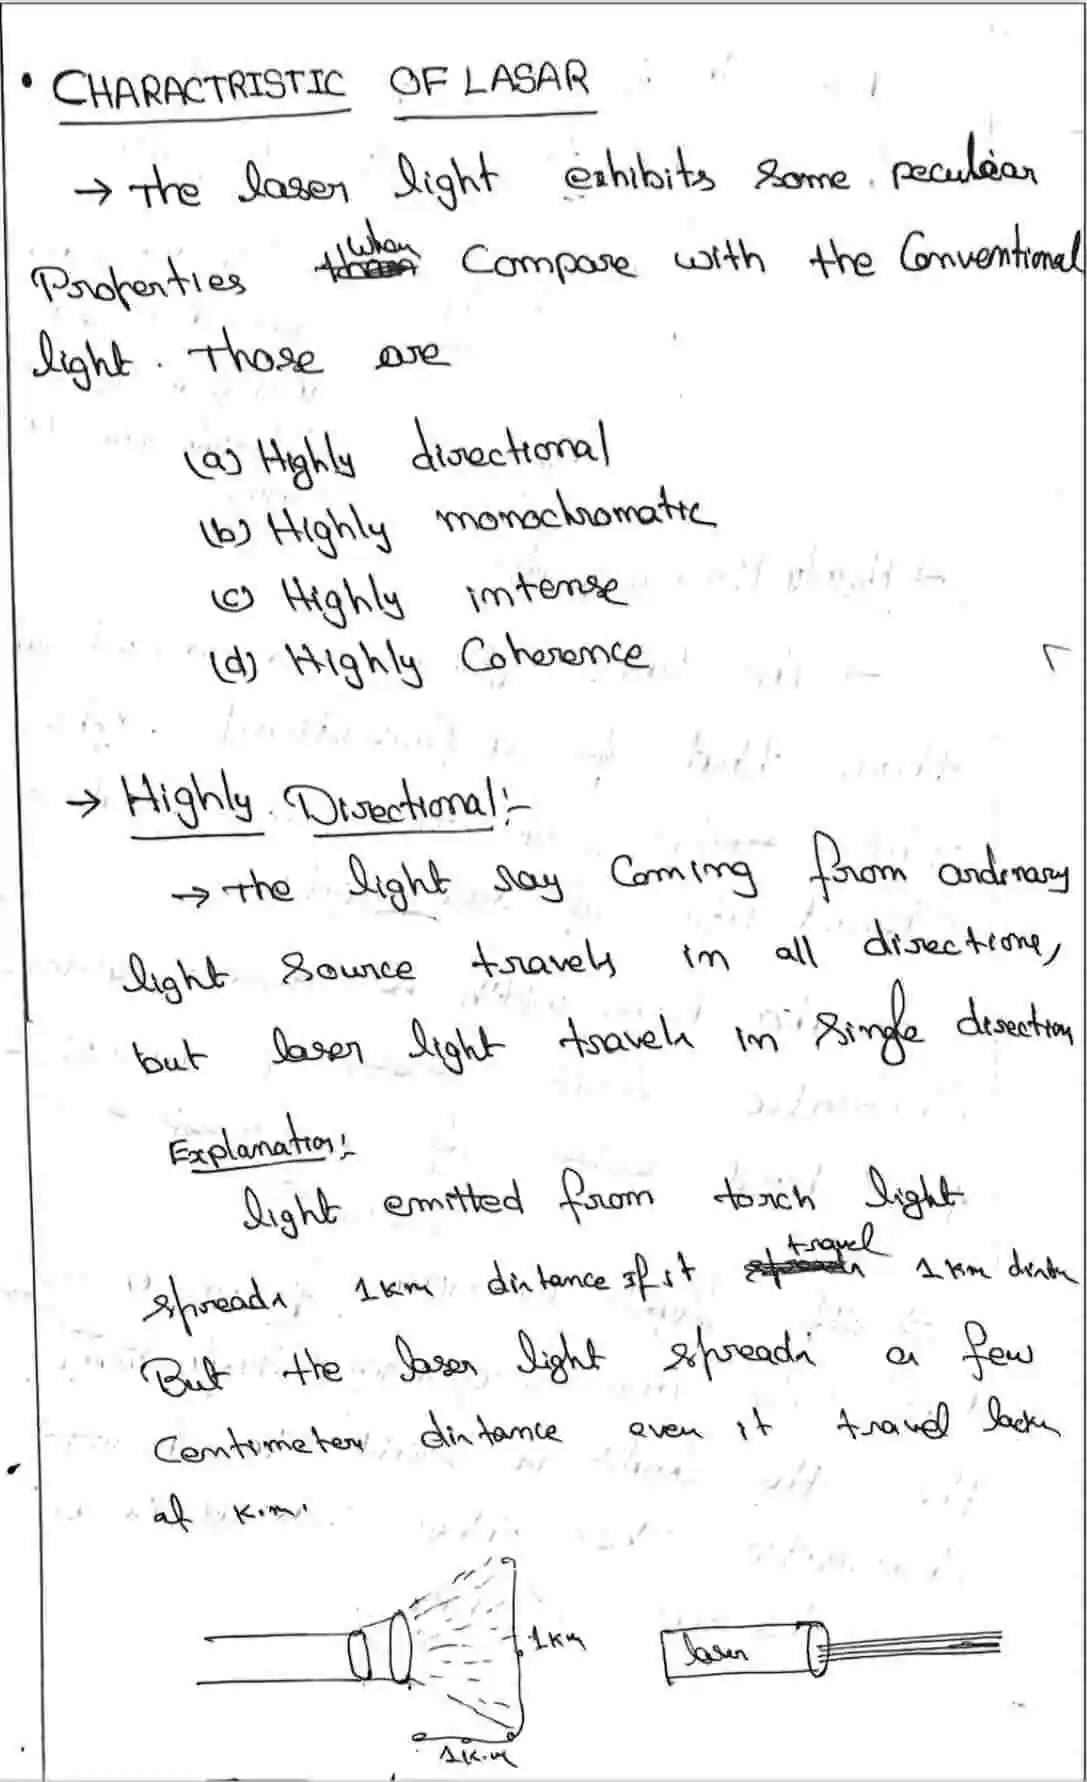 • CHARACTRISTIC OF LASAR
→ The laser light exhibits some peculiar
Properties when Compare with the Conventional
light. Those are
(a) Highly directional
(b) Highly monochromatic
(c) Highly intense
(d) Highly Coherence
→ Highly Directional:-
→ The light ray Coming from ordinary
light source travels in all directions,
but laser light travels in single direction
Explanation:-
light emitted from torch light
spreads 1km distance if it travel 1km
But the laser light spreads a few
Centimeters distance even it travel lacks
of k.m.
1km
laser
1k.m